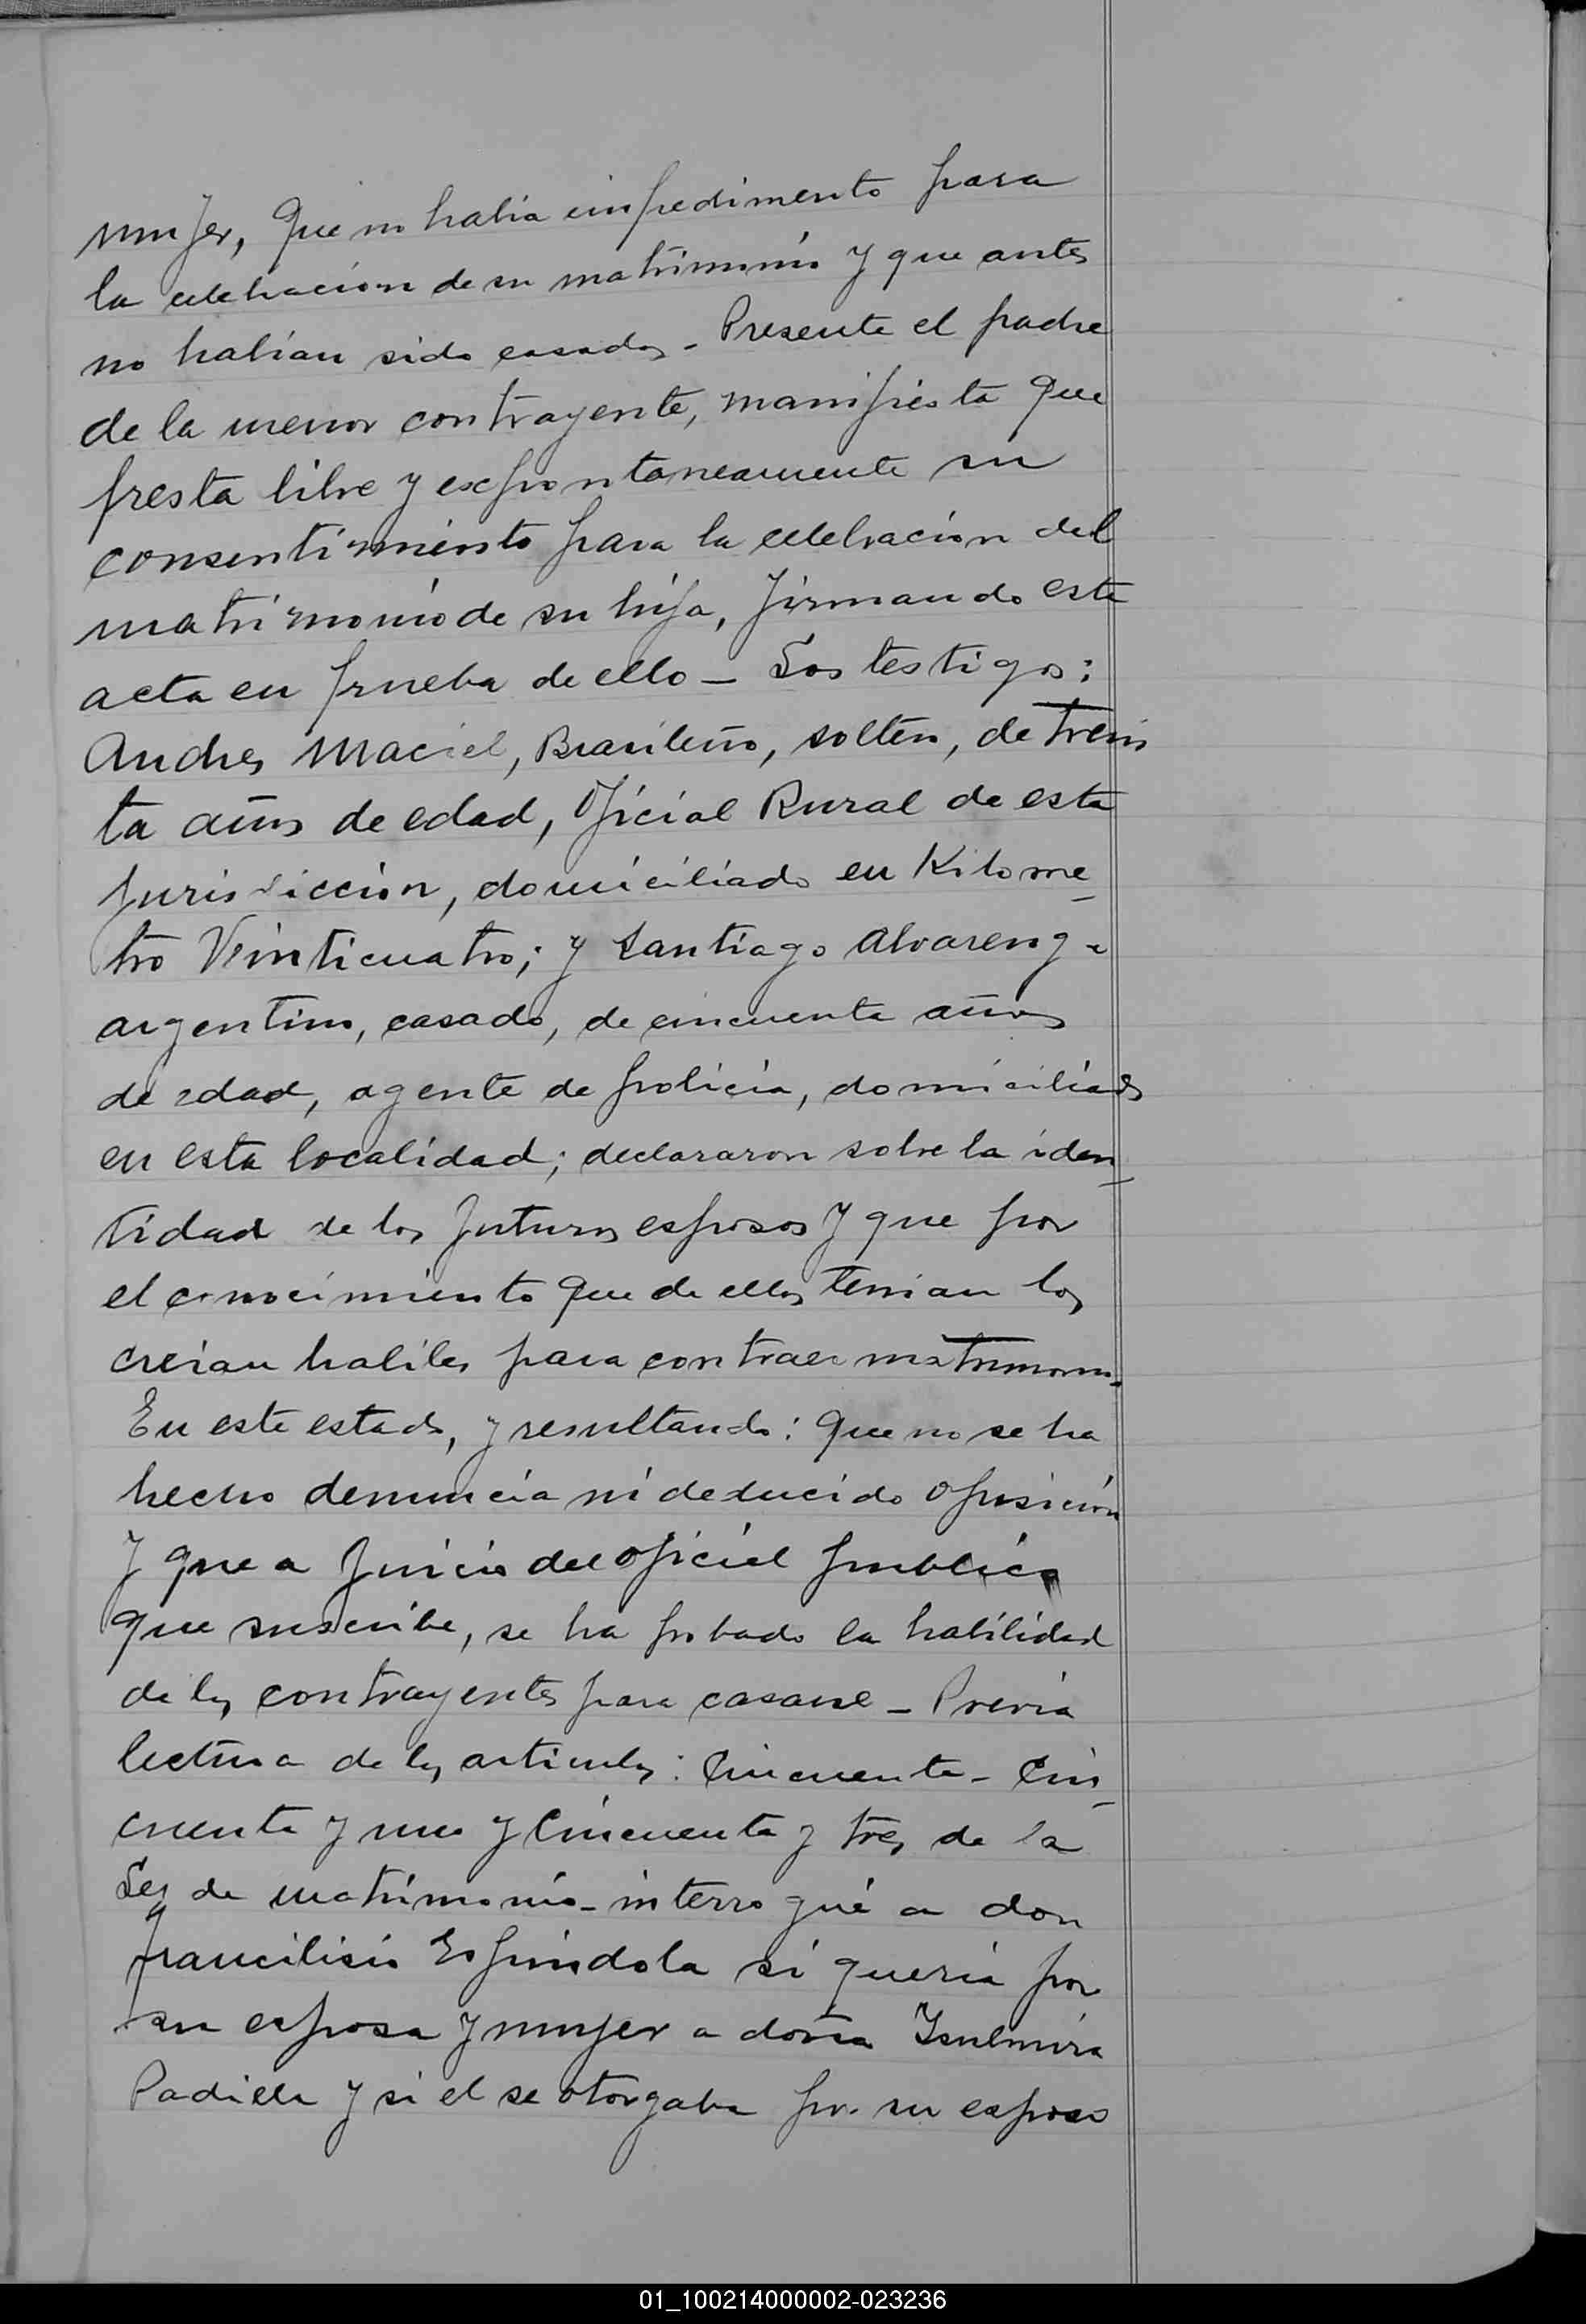 mujer, Que no habia impedimento para
la celebracion de su matrimonio y que antes
no habian sido casados - Presente el padre
de la menor contrayente, manifiesta que
presta libre y exspontaneamente su
consentimiento para la celebracion del
matrimonio de su hija, firmando este
acta en prueba de ello - Los testigos:
Andres Maciel, Brasileño, soltero, de trein
ta años de edad, Oficial Rural de esta
Jurisdiccion, domiciliado en Kilome_
tro Veinticuatro; y Santiago Alvarenga
argentino, casado, de cincuenta años
de edad, agente de policia, domiciliado
en esta localidad; declararon sobre la iden_
tidad de los futuros esposos y que por
el conocimiento que de ellos tenian los
creian habiles para contraer matrimonio.
En este estado, y resultando: que no se ha
hecho denuncia ni deducido oposición
y que a juicio del oficial publico
que suscribe, se ha probado la habilidad
de los contrayentes para casarse - Previa
lectura de los articulos: Cincuenta - Cin_
cuenta y uno y Cincuenta y tres de la
Ley de matrimonio - interrogué a don
Francilisio Espindola si queria por
su esposa y mujer a doña Isulmira
Padilla y si el se otorgaba por su esposo
01_100214000002-023236